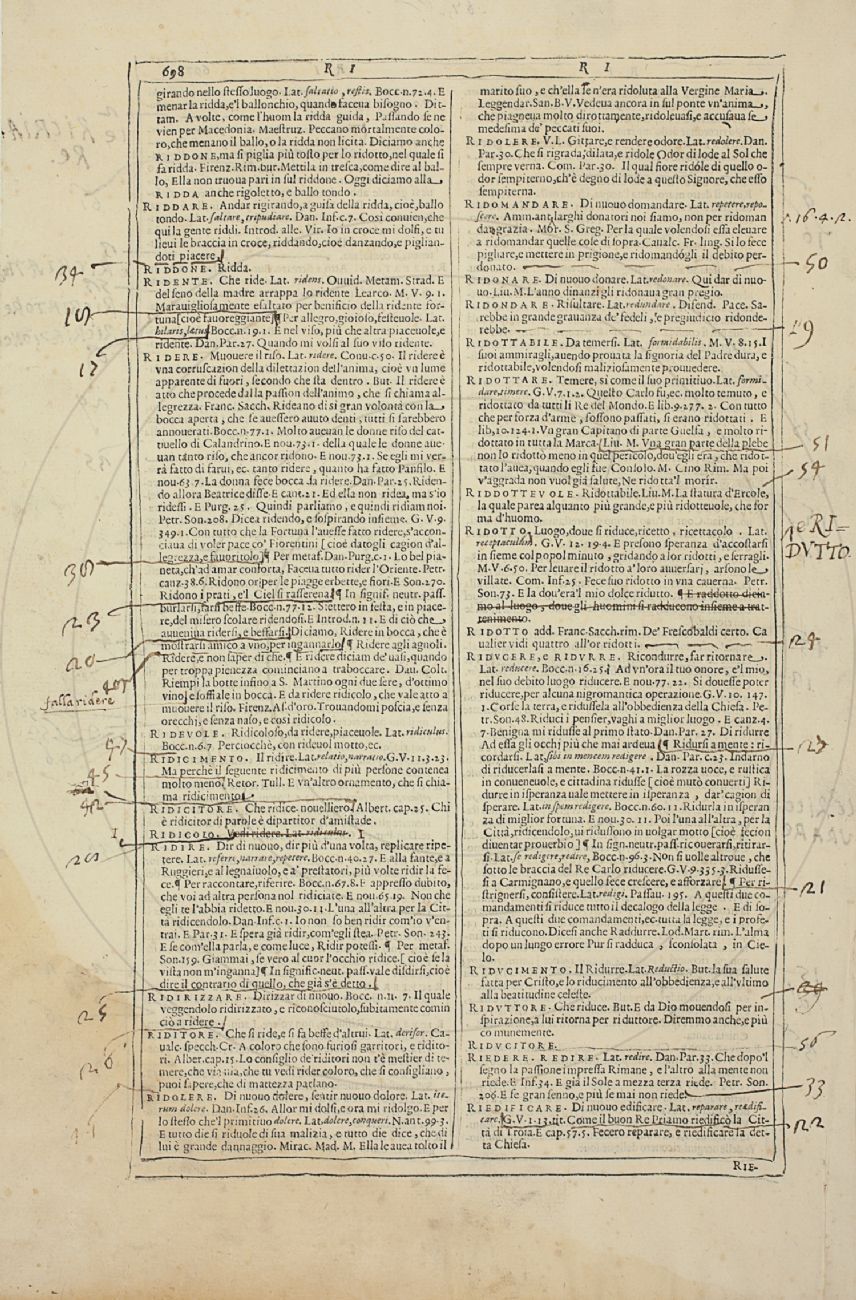 698 R I R I
girando nello stesso luogo. Lat. saltatio, restis. Bocc.n.72.4. E
menar la ridda, e'l ballonchio, quando faceua bisogno. Dit-
tam. A volte, come l'huom la ridda guida, Passando se ne
vien per Macedonia. Maestruz. Peccano mortalmente colo-
ro, che menano il ballo, o la ridda non licita. Diciamo anche
RIDDONE, ma si piglia più tosto per lo ridotto, nel quale si
fa ridda. Firenz. Rim.bur. Mettila in tresca, come dire al bal-
lo, Ella non truoua pari in sul riddone. Oggi diciamo alla
RIDDA anche rigoletto, e ballo tondo.
RIDDARE. Andar rigirando, a guisa della ridda, cioè, ballo
tondo. Lat. saltare, trepudiare. Dan. Inf.c.7. Così conuien, che
qui la gente riddi. Introd. alle. Vir. Io in croce mi dolsi, e tu
lieui le braccia in croce, riddando, cioè danzando, e piglian-
doti piacere.
RIDDONE. Ridda.
RIDENTE. Che ride. Lat. ridens. Ouuid. Metam. Strad. E
del seno della madre arrappa lo ridente Learco. M. V. 9. 1.
Marauigliosamente esaltato per benificio della ridente for-
tuna[cioè fauoreggiante]¶ Per allegro, gioioso, festeuole. Lat.
hilaris, lætus Bocc.n.19.1. E nel viso, più che altra piaceuole, e
ridente. Dan.Par.27. Quando mi volsi al suo viso ridente.
RIDERE. Muouere il riso. Lat. ridere. Conu.c.50. Il ridere è
vna corruscazion della dilettazion dell'anima, cioè vn lume
apparente di fuori, secondo che sta dentro. But. Il ridere è
atto che procede dalla passion dell'animo, che si chiama al-
legrezza. Franc. Sacch. Rideano di sì gran volontà con la
bocca aperta, che se auessero auuto denti, tutti si sarebbero
annouerati. Bocc.n.77.1. Molto aueuan le donne riso del cat-
tiuello di Calandrino. E nou.73.1. della quale le donne aue-
uan tanto riso, che ancor ridono. E nou.73.1. Se egli mi ver-
rà fatto di farui, ec. tanto ridere, quanto ha fatto Panfilo. E
nou.63.7. La donna fece bocca da ridere. Dan.Par.25. Riden-
do allora Beatrice disse. E cant.21. Ed ella non ridea, ma s'io
ridessi. E Purg. 25. Quindi parliamo, e quindi ridiam noi.
Petr. Son.208. Dicea ridendo, e sospirando insieme. G. V. 9.
349.1. Con tutto che la Fortuna l'auesse fatto ridere, s'accon-
ciaua di voler pace co' Fiorentini [cioè datogli cagion d'al-
legrezza, e fauoritolo]¶ Per metaf. Dan.Purg.c.1. Lo bel pia-
neta, ch'ad amar conforta, Faceua tutto rider l'Oriente. Petr.
canz.38.6. Ridono or per le piagge erbette, e fiori. E Son.270.
Ridono i prati, e'l Ciel si rasserena.¶ In signif. neutr. pass.
burlarsi, farsi beffe. Bocc.n.77.12. Stettero in festa, e in piace-
re, del misero scolare ridendosi. E Introd.n.11. E di ciò che
auueniua ridersi, e beffarsi. Diciamo, Ridere in bocca, che è
mostrarsi amico a vno, per ingannarlo¶ Ridere agli agnoli.
Ridere, e non saper di che.¶ E ridere diciam de' uasi, quando
per troppa pienezza cominciano a traboccare. Dan. Colt.
Riempi la botte infino a S. Martino ogni due sere, d'ottimo
vino, e soffiale in bocca. E da ridere ridicolo, che vale atto a
muouere il riso. Firenz. As.d'oro. Trouandomi poscia, e senza
orecchi, e senza naso, e così ridicolo.
RIDEVOLE. Ridicoloso, da ridere, piaceuole. Lat. ridiculus.
Bocc.n.6.7. Perciocchè, con rideuol motto, ec.
RIDICIMENTO. Il ridire. Lat. relatio, narratio. G.V.11.3.23.
Ma perchè il seguente ridicimento di più persone contenea
molto meno. Retor. Tull. E vn'altro ornamento, che si chia-
ma ridicimento.
RIDICITORE. Che ridice. nouelliero. Albert. cap.25. Chi
è ridicitor di parole è dipartitor d'amistade.
RIDICOLO. Vedi ridere. Lat. ridiculus.
RIDIRE. Dir di nuouo, dir più d'una volta, replicare ripe-
tere. Lat. referre, narrare, repetere. Bocc.n.40.27. E alla fante, e a
Ruggieri, e al legnaiuolo, e a' prestatori, più volte ridir la fe-
ce.¶ Per raccontare, riferire. Bocc.n.67.8. E appresso dubito,
che voi ad altra persona nol ridiciate. E nou.65.19. Non che
egli te l'abbia ridetto. E nou.30.11. L'una all'altra per la Cit-
tà ridicendolo. Dan.Inf.c.1. Io non so ben ridir com'io v'en-
trai. E Par.31. E spera già ridir, com'egli stea. Petr. Son. 243.
E se com'ella parla, e come luce, Ridir potessi. ¶ Per metaf.
Son.159. Giammai, se vero al cuor l'occhio ridice. [cioè se la
vista non m'inganna]¶ In signific. neut. pass. vale disdirsi, cioè
dire il contrario di quello, che già s'è detto.
RIDIRIZZARE. Dirizzar di nuouo. Bocc. n.11. 7. Il quale
veggendolo ridirizzato, e riconosciutolo, subitamente comin
ciò a ridere.
RIDITORE. Che si ride, e si fa beffe d'altrui. Lat. derisor. Ca-
ualc. specch.Cr. A coloro che sono furiosi garritori, e ridito-
ri. Albert.cap.15. Lo consiglio de' riditori non t'è mestier di te-
mere, che via via, che tu vedi rider coloro, che si consigliano,
puoi sapere, che di mattezza parlano.
RIDOLERE. Di nuouo dolere, sentir nuouo dolore. Lat. ite-
rum dolere. Dan.Inf.26. Allor mi dolsi, e ora mi ridolgo. E per
lo stesso che'l primitiuo dolere. Lat. dolere, conqueri. N.ant.99.3.
E tutto die si riduole di sua malizia, e tutto die dice, che di
lui è grande dannaggio. Mirac. Mad. M. Ella le auea tolto il
marito suo, e ch'ella se n'era ridoluta alla Vergine Maria.
Leggendar.San.B.V. Vedeua ancora in sul ponte vn'anima,
che piagneua molto dirottamente, ridoleuasi, e accusaua se
medesima de' peccati suoi.
RIDOLERE. V.L. Gittare, e rendere odore. Lat. redolere. Dan.
Par.30. Che si rigrada, dilata, e ridole Odor di lode al Sol che
sempre verna. Com. Par.30. Il qual fiore ridole di quello o-
dor sempiterno, ch'è degno di lode a questo Signore, che esso
sempiterna.
RIDOMANDARE. Di nuouo domandare. Lat. repetere, repo-
scere. Amm.ant. larghi donatori noi siamo, non per ridoman
dar grazia. Mor. S. Greg. Per la quale volendosi essa eleuare
a ridomandar quelle cose di sopra. Caualc. Fr. ling. Si lo fece
pigliare, e mettere in prigione, e ridomandogli il debito per-
donato.
RIDONARE. Di nuouo donare. Lat. redonare. Qui dar di nuo-
uo. Liu.M. L'anno dinanzi gli ridonaua gran pregio.
RIDONDARE. Risultare. Lat. redundare. Difend. Pace. Sa-
rebbe in grande grauanza de' fedeli, se pregiudicio ridonde-
rebbe.
RIDOTTABILE. Da temersi. Lat. formidabilis. M. V. 8.15. I
suoi ammiragli, auendo prouata la signoria del Padre dura, e
ridottabile, volendosi maliziosamente prouuedere.
RIDOTTARE. Temere, sì come il suo primitiuo. Lat. formi-
dare, timere. G.V.7.1.2. Questo Carlo fu, ec. molto temuto, e
ridottato da tutti li Re del Mondo. E lib.9.277. 2. Con tutto
che per forza d'arme, fossono passati, si erano ridottati. E
lib.10.124.1. Vn gran Capitano di parte Guelfa, e molto ri-
dottato in tutta la Marca. Liu. M. Vna gran parte della plebe
non lo ridottò meno in quel pericolo, dou'egli era, che ridot-
tato l'auea, quando egli fue Consolo. M. Cino Rim. Ma poi
v'aggrada non vuol già salute, Ne ridotta'l morir.
RIDDOTTEVOLE. Ridottabile. Liu.M. La statura d'Ercole,
la quale parea alquanto più grande, e più ridotteuole, che for
ma d'huomo.
RIDOTTO. Luogo, doue si riduce, ricetto, ricettacolo. Lat.
receptaculum. G.V. 12. 19.4. E presono speranza d'accostarsi
insieme col popol minuto, gridando a lor ridotti, e serragli.
M.V.6.50. Per leuare il ridotto a' loro auuersarj, arsono le
villate. Com. Inf.25. Fece suo ridotto in vna cauerna. Petr.
Son.73. E la dou'era'l mio dolce ridutto. ¶ E raddotto dicia-
mo al luogo, doue gli huomini si radducono insieme a trat-
tenimento.
RIDOTTO add. Franc.Sacch.rim. De' Frescobaldi certo. Ca
ualier vidi quattro all'or ridotti.
RIDVCERE, e RIDVRRE. Ricondurre, far ritornare.
Lat. reducere. Bocc.n.16.25. Ad vn'ora il tuo onore, e'l mio,
nel suo debito luogo riducere. E nou.77.22. Si douesse poter
riducere, per alcuna nigromantica operazione. G.V.10. 147.
1. Corse la terra, e ridussela all'obbedienza della Chiesa. Pe-
tr. Son.48. Riduci i pensier, vaghi a miglior luogo. E canz.4.
7. Benigna mi ridusse al primo stato. Dan.Par. 27. Di ridurre
Ad essa gli occhj più che mai ardeua.¶ Ridursi a mente: ri-
cordarsi. Lat. sibi in mentem redigere. Dan. Par. c.23. Indarno
di riducerlasi a mente. Bocc.n.41.1. La rozza uoce, e rustica
in conueneuole, e cittadina ridusse [cioè mutò conuertì] Ri-
durre in isperanza uale mettere in isperanza, dar'cagion di
sperare. Lat. in spem redigere. Bocc.n.60.11. Ridurla in isperan
za di miglior fortuna. E nou.30.11. Poi l'una all'altra, per la
Città, ridicendolo, ui ridussono in uolgar motto [cioè fecion
diuentar prouerbio]¶ In sign.neutr.pass. ricouerarsi, ritirar-
si. Lat. se redigere, redire, Bocc.n.96.3. Non si uolle altroue, che
sotto le braccia del Re Carlo riducere. G.V.9.335.3. Ridusse-
si a Carmignano, e quello fece crescere, e afforzare.¶ Per ri-
strignersi, consistere. Lat. redigi. Passau.195. A questi due co-
mandamenti si riduce tutto il decalogo della legge. E di so-
pra. A questi due comandamenti, ec. tutta la legge, e i profe-
ti si riducono. Dicesi anche Raddurre. Lod.Mart. rim. L'alma
dopo un lungo errore Pur si radduca, sconsolata, in Cie-
lo.
RIDVCIMENTO. Il Ridurre. Lat. Reductio. But. la sua salute
fatta per Cristo, e lo riducimento all'obbedienza, e all'vltimo
alla beatitudine celeste.
RIDVTTORE. Che riduce. But. E da Dio mouendosi per in-
spirazione, a lui ritorna per riduttore. Diremmo anche, e più
comunemente.
RIDVCITORE.
RIEDERE. REDIRE. Lat. redire. Dan.Par.33. Che dopo'l
segno la passione impressa Rimane, e l'altro alla mente non
riede. E Inf.34. E già il Sole a mezza terza riede. Petr. Son.
206. E se gran senno, e più se mai non riede.
RIEDIFICARE. Di nuouo edificare. Lat. reparare, reædifi-
care. G.V.1.13.tit. Come il buon Re Priamo riedificò la Cit-
tà di Troia. E cap.57.5. Fecero reparare, e riedificare la det-
ta Chiesa.
RIE-
34
107
17
30
23
20
407
fassi ridere
47
45
42
201
25
26
16.4.2.
50
29
51
54
e RI-
DVTTO
24
27
21
29
56
33
22